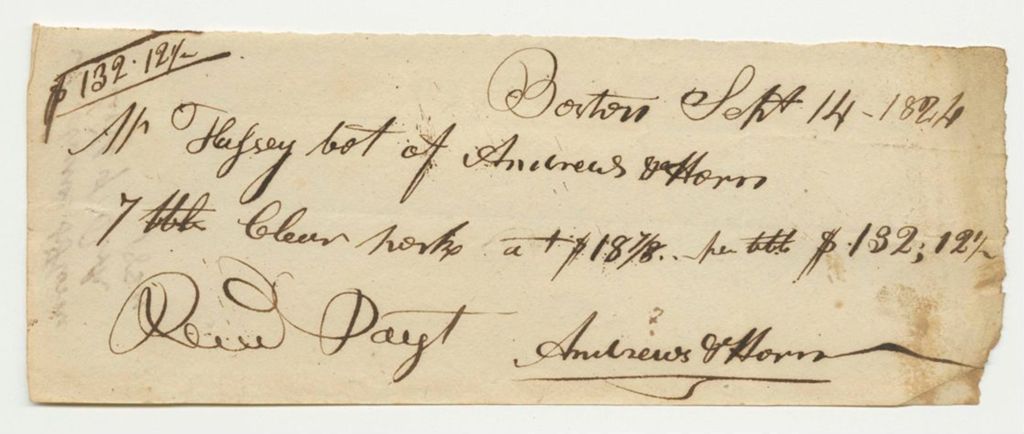 $ 132.12½
Boston Sept 14 - 1824
Mr Hussey bot of Andrews & Horn
7 bbls Clear pork at $18 7/8.. per bbl $.132;12½
Recd Payt Andrews & Horn